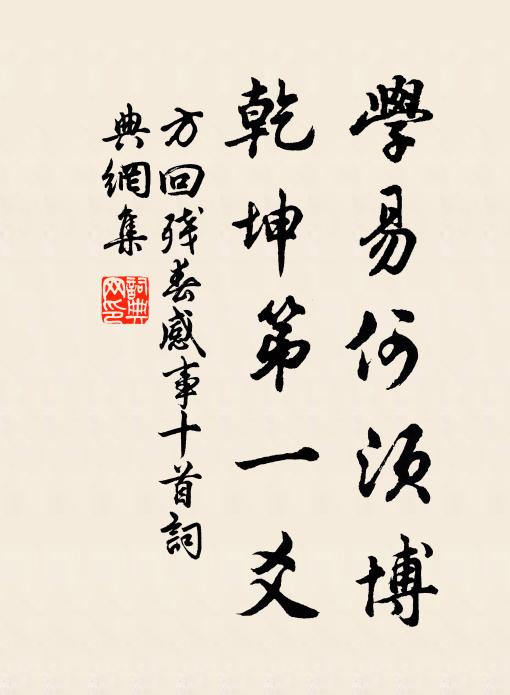 學易何須博
乾坤第一爻
方回殘春感事十首詞
典網集
詞典網印